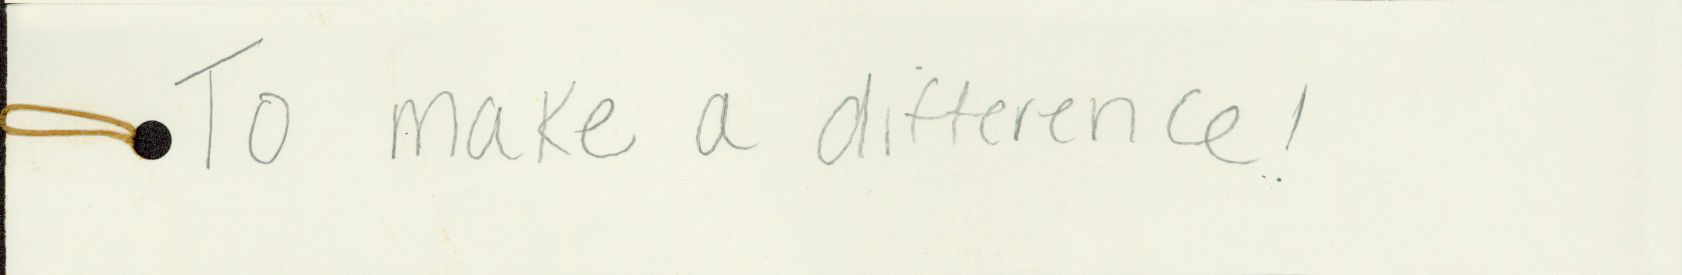 To make a difference!